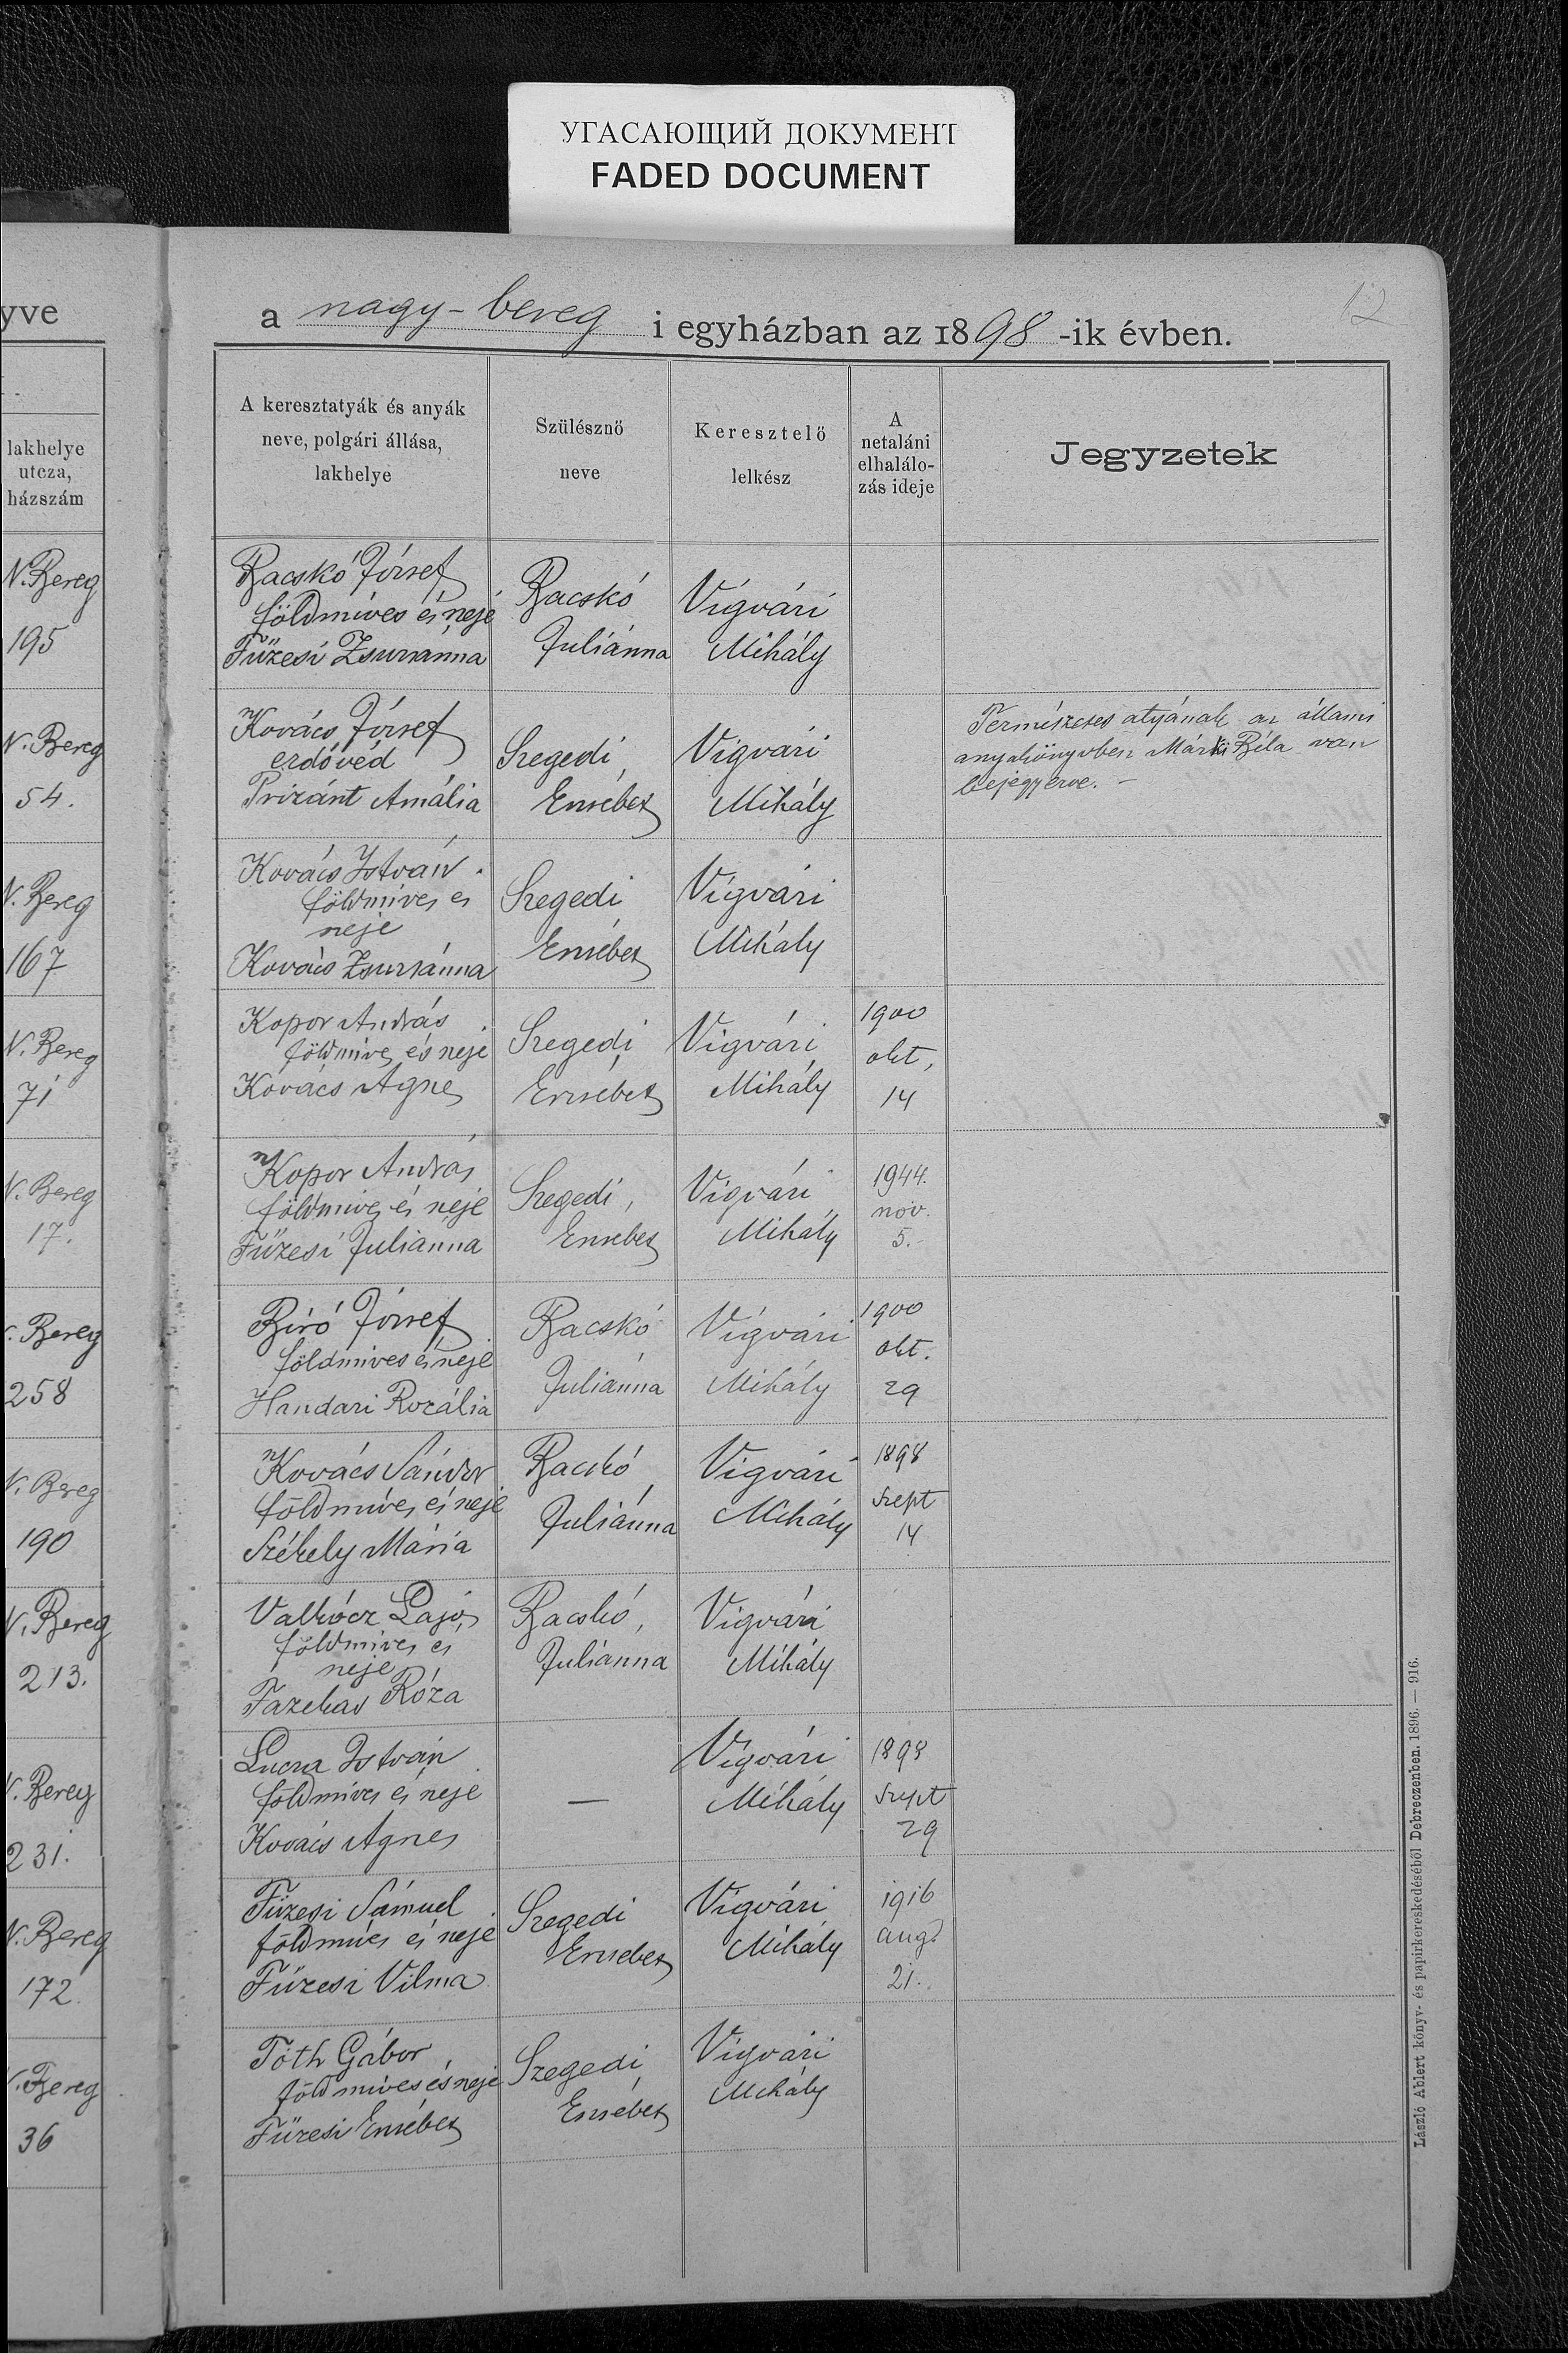 УГАСАЮЩИЙ ДОКУМЕНТ
FADED DOCUMENT
12
yve
a nagy-bereg i egyházban az 1898-ik évben.
lakhelye
utcza,
házszám
A keresztatyák és anyák
neve, polgári állása,
lakhelye
Szülésznö
neve
Keresztelö
lelkész
A
netaláni
elhalálo-
zás ideje
Jegyzetek
N. Bereg
195
Bacskó József
földmíves és neje
Füzesi Zsuzsánna
Bacskó
Juliánna
Vígvári
Mihály
N. Bereg
54.
Kovács József
erdővéd
Prizánt Amália
Szegedi
Erzsébet
Vígvári
Mihály
Természetes atyának az állami
anyakönyvben Márki Béla van
bejegyezve. –
N. Bereg
167
Kovács István
földmíves és
neje
Kovács Zsuzsánna
Szegedi
Erzsébet
Vígvári
Mihály
N. Bereg
71
Kopor András
földmíves és neje
Kovács Ágnes
Szegedi
Erzsébet
Vígvári
Mihály
1900
okt.
14
N. Bereg
17.
n Kopor András
földmíves és neje
Füzesi Juliánna
Szegedi
Erzsébet
Vígvári
Mihály
1944.
nov.
5.
. Bereg
258
Bíró József
földmíves és neje
Handari Rozália
Bacskó
Juliánna
Vígvári
Mihály
1900
okt.
29
N. Bereg
190
n Kovács Sándor
földmíves és neje
Székely Mária
Bacskó
Juliánna
Vígvári
Mihály
1898
Szept
14
N. Bereg
213.
Valkócz Lajos
földmíves és
neje
Fazekas Róza
Bacskó
Juliánna
Vígvári
Mihály
N. Bereg
231.
István
földmíves és neje
Kovács Ágnes
—
Vígvári
Mihály
1898
Szept
29
N. Bereg
172.
Füzesi Sámuel
földmíves és neje
Füzesi Vilma
Szegedi
Erzsébet
Vígvári
Mihály
1916
aug.
21.
. Bereg
36
Tóth Gábor
földmíves és neje
Füzesi Erzsébet
Szegedi
Erzsébet
Vígvári
Mihály
László Ablert könyv- és papirkereskedéséböl Debreczenben. 1896. — 916.